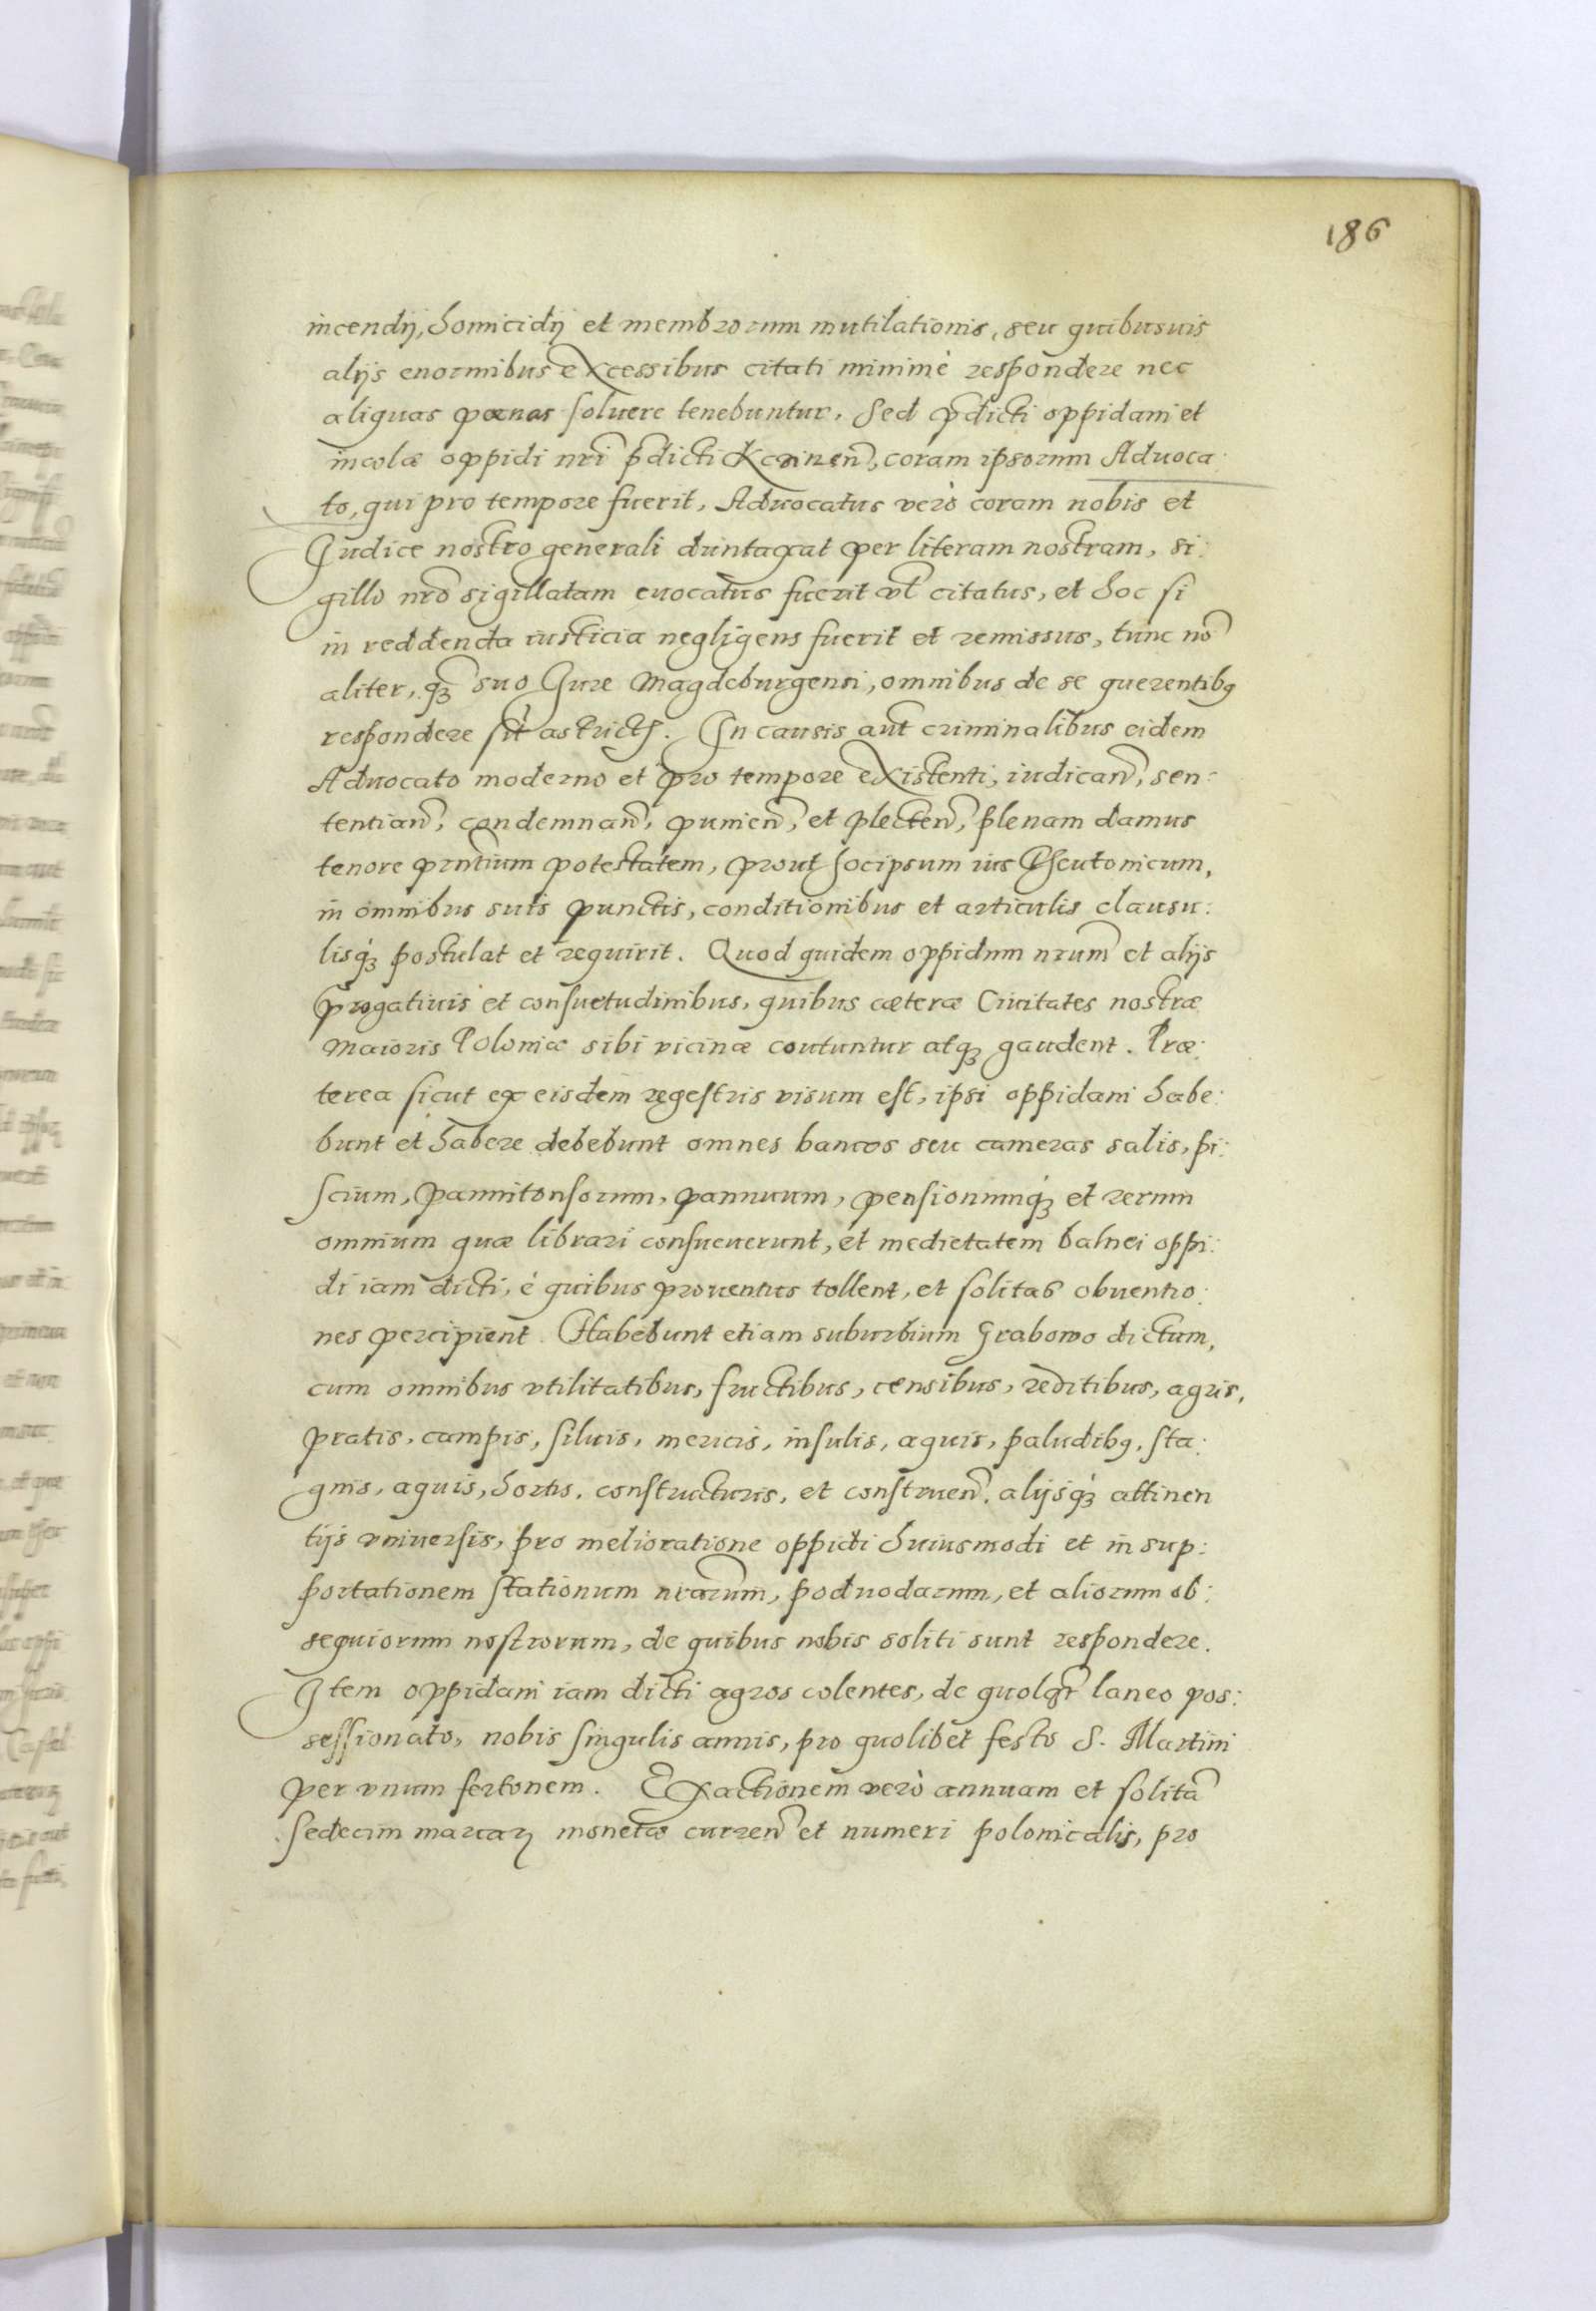 186
incendij, homicidij et membrorum mutilationis, seu quibusuis
alijs enormibus excessibus citati minimè respondere nec
aliquas pœnas soluere tenebuntur. Sed p̃dicti oppidani et
incolæ oppidi nr̃i p̃dicti coram ipsorum Aduoca:
to, qui pro tempore fuerit, Aduocatus verò coram nobis et
Iudice nostro generali duntaxat per literam nostram, si:
gillo nr̃o sigillatam euocatus fuerit vl̃ citatus, et hoc si
in reddenda iusticia negligens fuerit et remissus, tunc nõ
aliter, q̃ȝ suo Iure Magdeburgensi, omnibus de se querentibꝯ
respondere sit astrictꝯ. In causis aut̃ criminalibus eidem
Aduocato moderno et pro tempore existenti, iudicañ, sen:
tentiañ, condemnañ, punieñ, et plecteñ, plenam damus
tenore pr̃ntium potestatem, prout hocipsum ius Theutonicum,
in omnibus suis punctis, conditionibus et articulis clausu:
lisq́ȝ postulat et requirit. Quod quidem oppidum nr̃um et alijs
p̃rogatiuis et consuetudinibus, quibus cæteræ Ciuitates nostræ
Maioris Poloniæ sibi vicinæ coutuntur atqȝ gaudent. Præ:
terea sicut ex eisdem regestris visum est, ipsi oppidani habe:
bunt et habere debebunt omnes bancos seu cameras salis, pi:
scium, pannitonsorum, pannuum, pensionumq́ȝ et rerum
omnium quæ librari consueuerunt, et medietatem balnei oppi:
di iam dicti, è quibus prouentus tollent, et solitas obuentio:
nes percipient. Habebunt etiam suburbium Grabowo dictum,
cum omnibus vtilitatibus, fructibus, censibus, reditibus, agris,
pratis, campis, siluis, mericis, insulis, aquis, paludibꝯ, sta:
gnis, aquis, hortis, constructuris, et construeñ, alijsq́ȝ attinen
tijs vniuersis, pro melioratione oppidi huiusmodi et in sup:
portationem stationum nr̃arum, poduodarum, et aliorum ob:
sequiorum nostrorum, de quibus nobis soliti sunt respondere.
Item oppidani iam dicti agros colentes, de quolꝫ laneo pos:
sessionato, nobis singulis annis, pro quolibet festo S. Martini
per vnum fertonem. Exactionem verò annuam et solitã
sedecim marcarꝫ monetæ curreñ et numeri polonicalis, pro